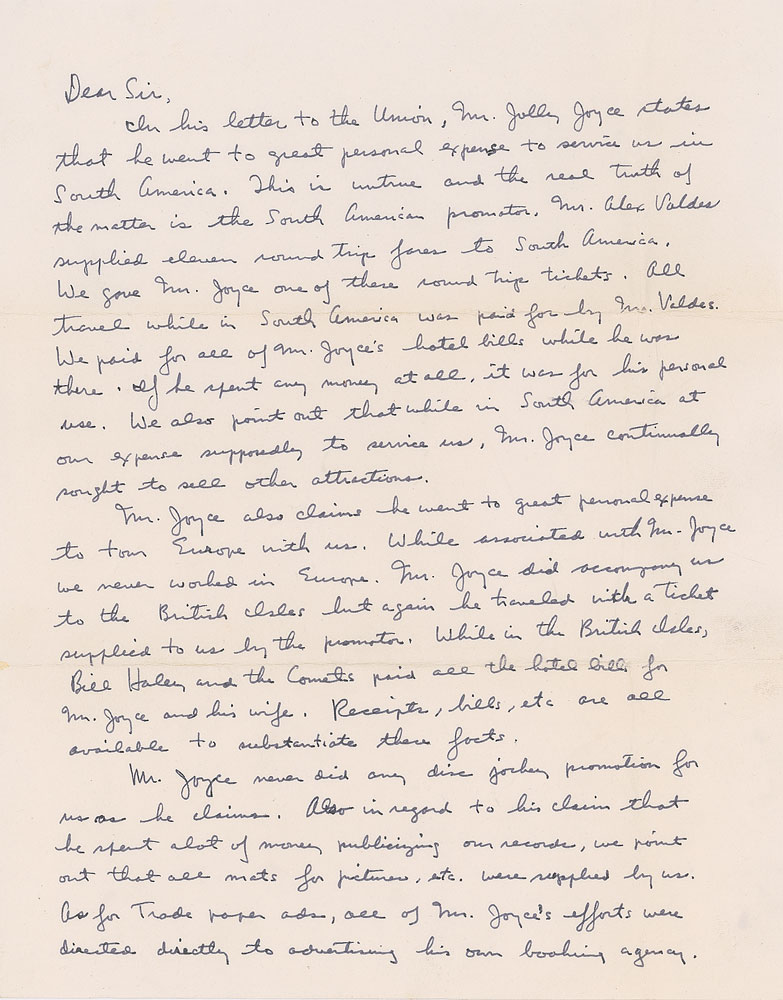 Dear Sir,
In his letter to the Union, Mr. Jolly Joyce states
that he went to great personal expense to service us in
South America. This is untrue and the real truth of
the matter is the South American promotor, Mr. Alex Valdes
supplied eleven round trip fares to South America.
We gave Mr. Joyce one of these round trip tickets. All
travel while in South America was paid for by Mr. Valdes.
We paid for all of Mr. Joyce's hotel bills while he was
there. If he spent any money at all, it was for his personal
use. We also point out that while in South America at
our expense supposedly to service us, Mr. Joyce continually
sought to sell other attractions.
Mr. Joyce also claims he went to great personal expense
to tour Europe with us. While associated with Mr. Joyce
we never worked in Europe. Mr. Joyce did accompany us
to the British Isles but again he traveled with a ticket
supplied to us by the promotor. While in the British Isles,
Bill Haley and the Comets paid all the hotel bills for
Mr. Joyce and his wife. Receipts, bills, etc are all
available to substantiate these facts.
Mr. Joyce never did any disc jockey promotion for
us as he claims. Also in regard to his claim that
he spent alot of money publicizing our records, we point
out that all mats for pictures, etc. were supplied by us.
As for Trade paper ads, all of Mr. Joyce's efforts were
directed directly to advertising his own booking agency.